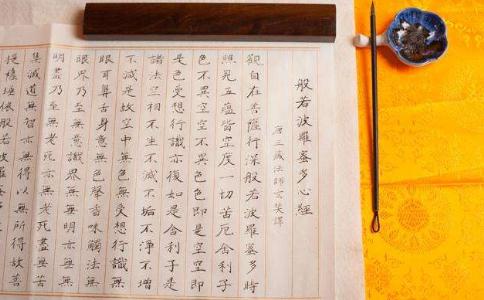 般若波羅蜜多心經
唐三藏法師玄奘譯
觀自在菩薩行深般若波羅蜜多時
照見五蘊皆空度一切苦厄舍利子
色不異空空不異色色即是空空即
是色受想行識亦復如是舍利子是
諸法空相不生不滅不垢不淨不增
不減是故空中無色無受想行識無
眼耳鼻舌身意無色聲香味觸法無
眼界乃至無意識界無無明亦無無
明盡乃至無老死亦無老死盡無苦
集滅道無智亦無得以無所得故菩
提薩埵依般若波羅